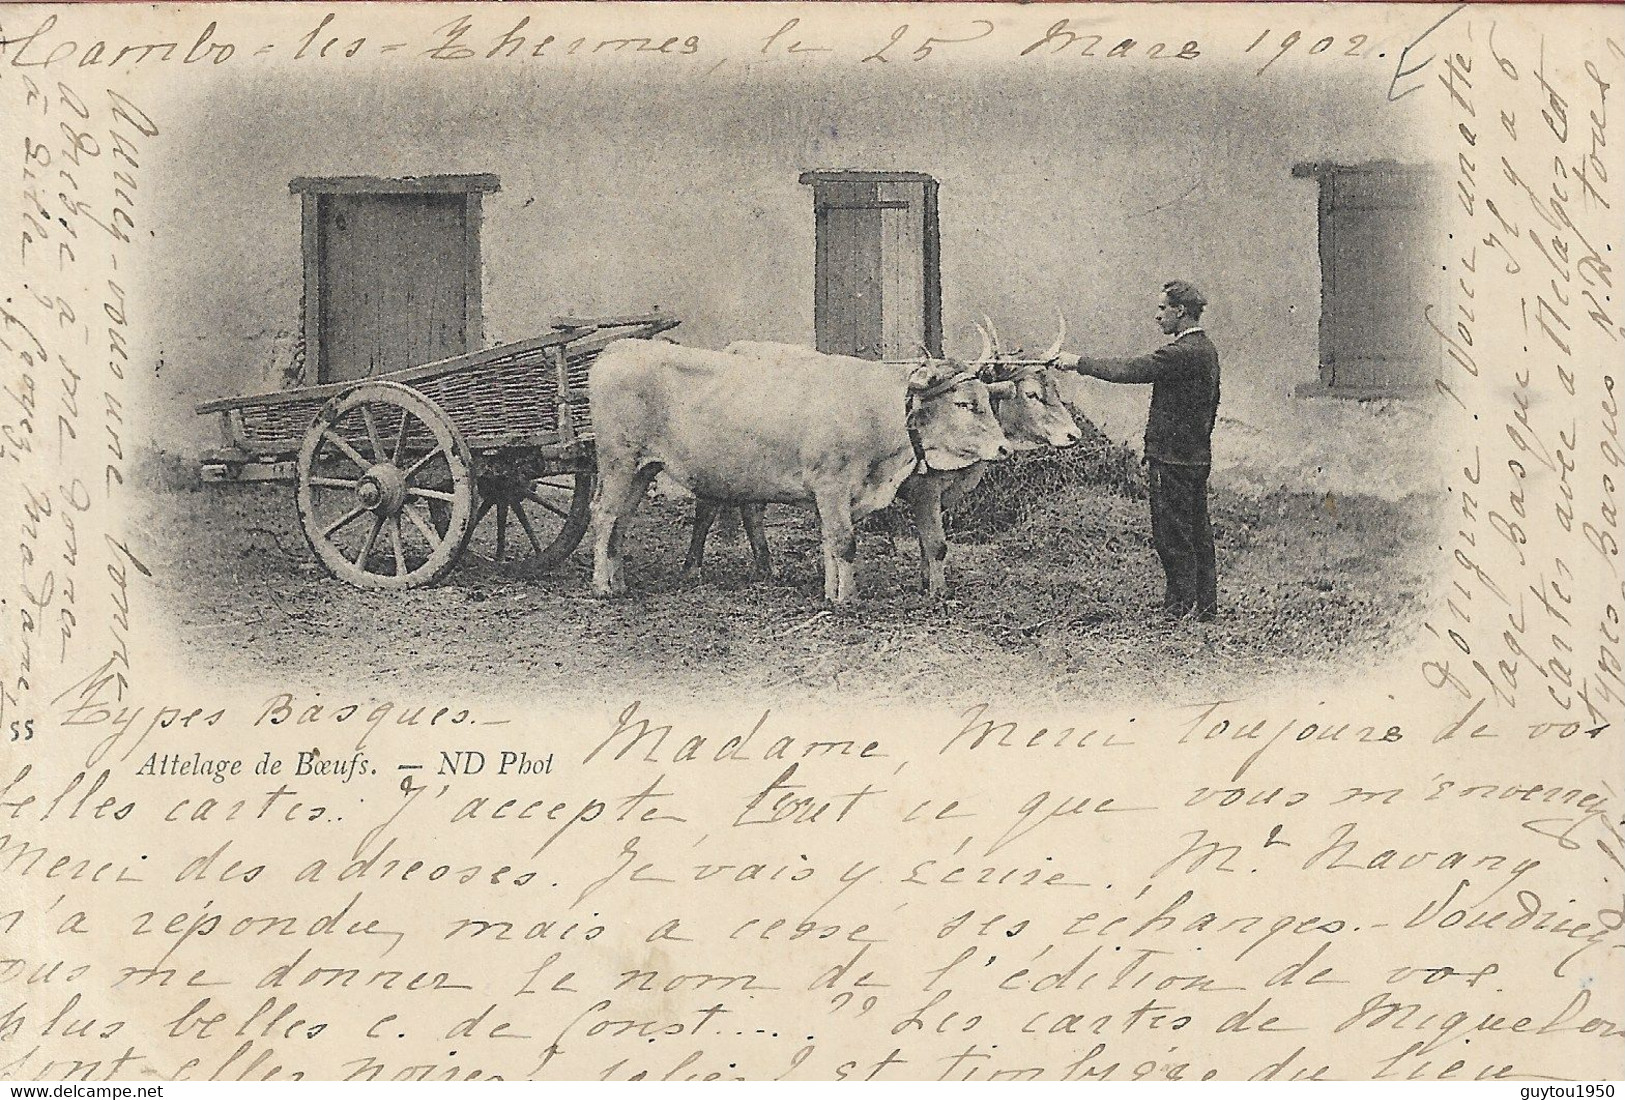 Cambo-les-Thermes, le 25 Mars 1902.
Types Basques.-
55 Attelage de Bœufs. — ND Phot
Madame, Merci toujours de vos
belles cartes. J'accepte tout ce que vous m'enverrez
Merci des adresses. Je vais y écrire. Mr Navarry
n'a répondu, mais a cessé ses échanges.- Voudriez-
vous me donner le nom de l'édition de vos
plus belles c. de Const....?? Les cartes de Miquelon
sont-elles noires? jolies? et timbrées du lieu
d'origine! Voici un atte-
lage Basque. Il y a 6
cartes avec attelages et
types Basques N.D. tous
Auriez-vous une bonne
adresse à me donner
à Lille? Croyez, Madame,